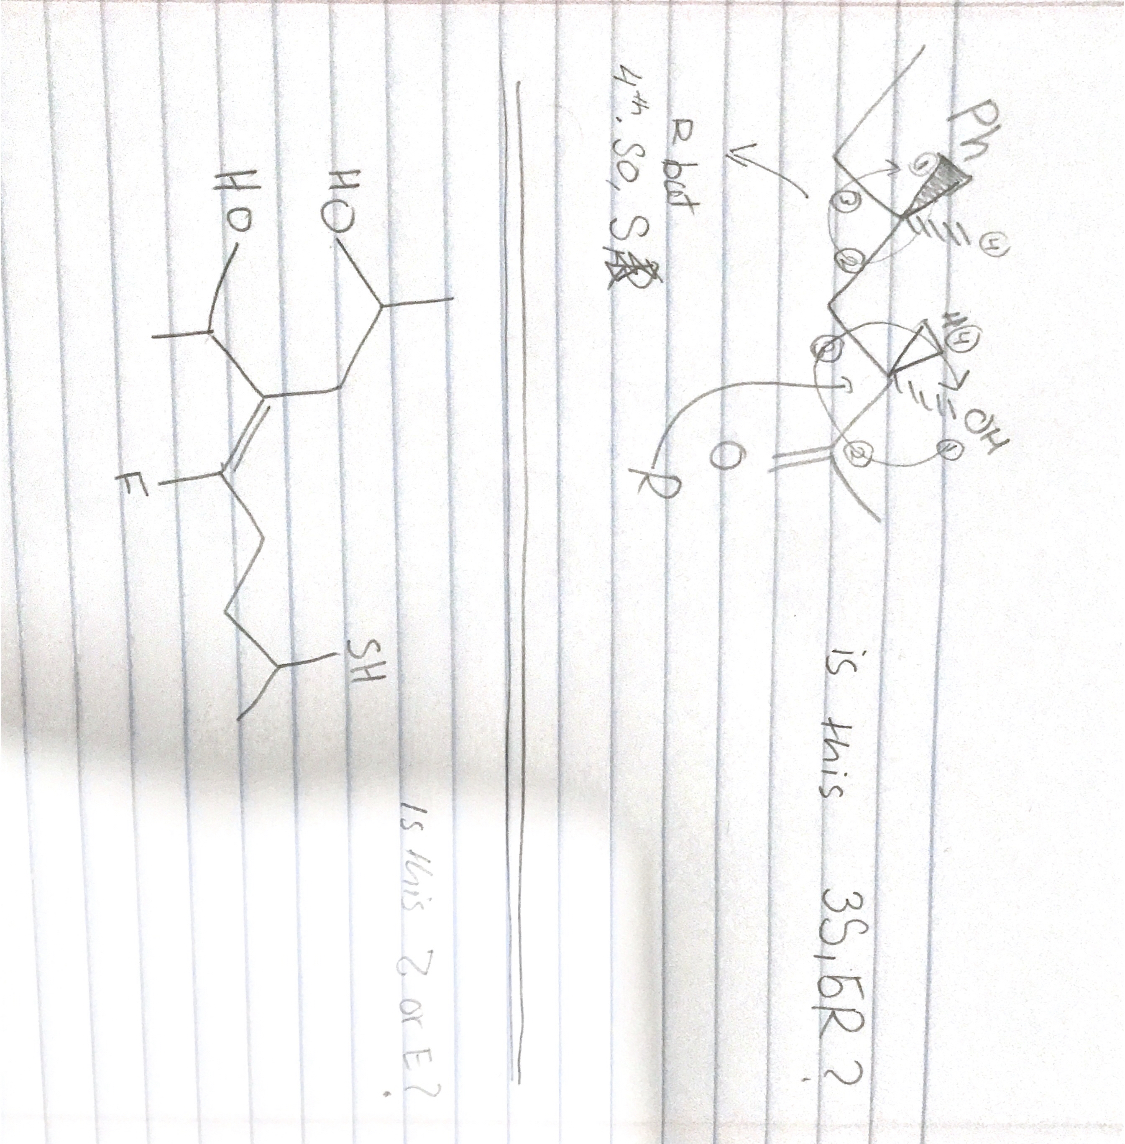 Ph
① ③ ② ④
H ④
OH
③ ② ①
O
R
R but
4th. so, S
is this 3S, 5R?
HO
HO
F
SH
Is this Z or E?